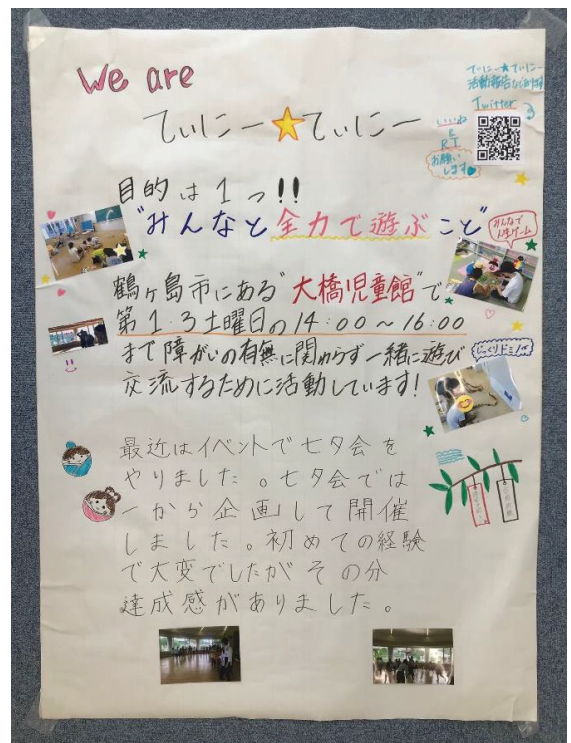 We are
てぃにー★てぃにー
てぃにー★てぃにー
活動報告など
Twitter
いいね
&
RT
お願い
します
目的は1つ!!
"みんなと全力で遊ぶこと"
みんなで
人生ゲーム
鶴ヶ島市にある"大橋児童館"で
第1.3土曜日の14:00~16:00
まで障がいの有無に関わらず一緒に遊び
交流するために活動しています!
じっくりドミノ
最近はイベントで七夕会を
やりました。七夕会では
一から企画して開催
しました。初めての経験
で大変でしたがその分
達成感がありました。